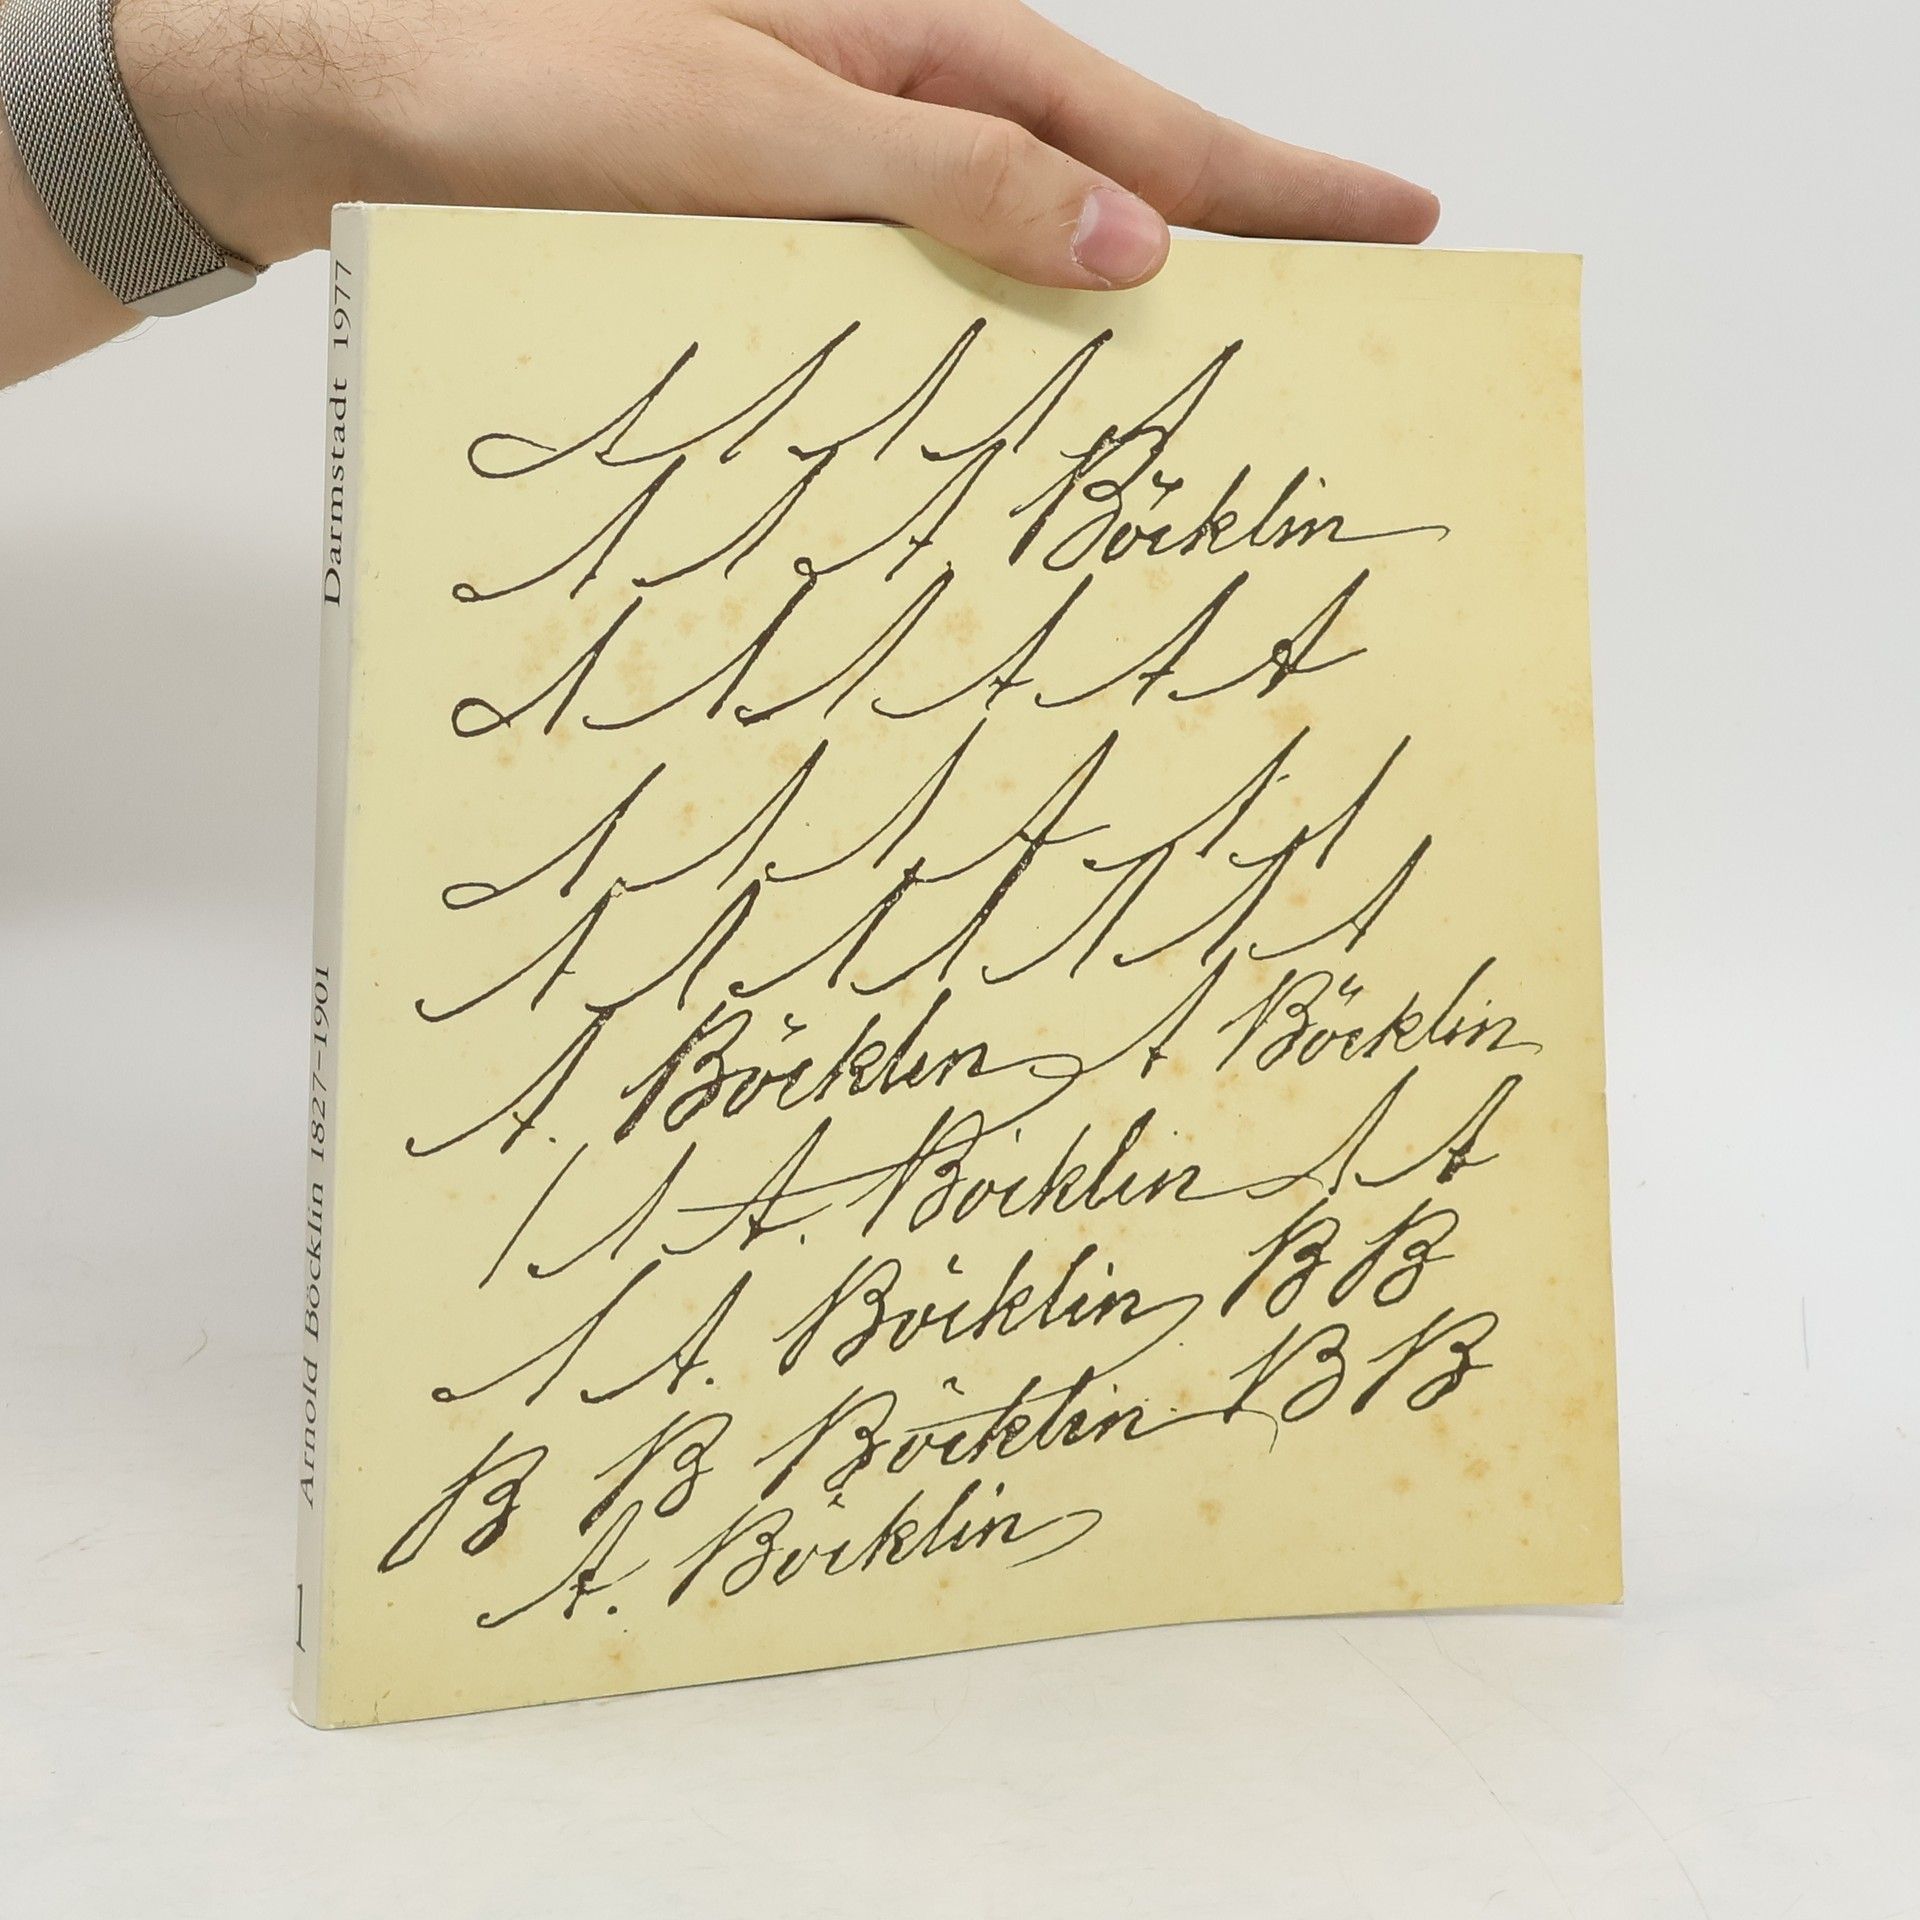 1 Arnold Böcklin 1827–1901 Darmstadt 1977
A A A A A
A A A Böcklin
A A A A A A
A A A A A A
A A A A A A A
A. Böcklin A Böcklin
A A. Böcklin A A
A A. Böcklin B B
B B Böcklin B B
A. Böcklin